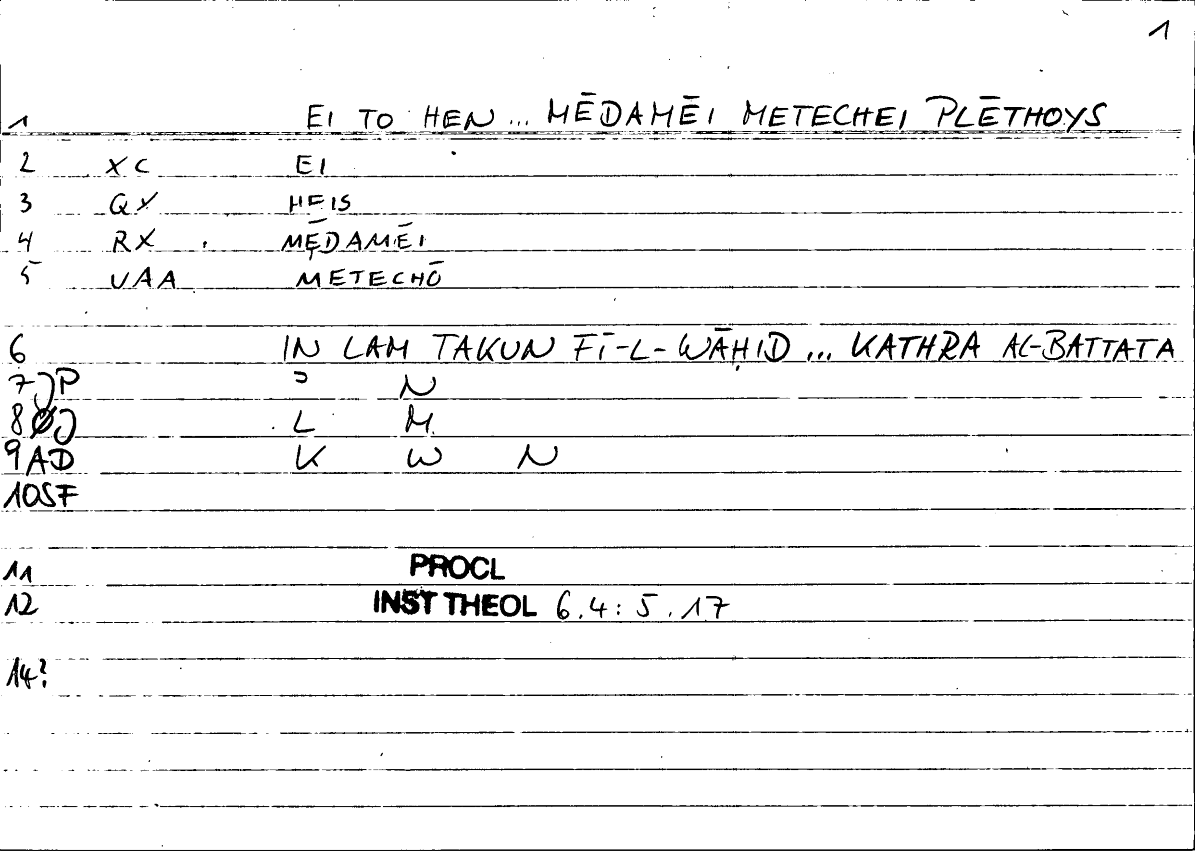 1
1 EI TO HEN ... MĒDAMĒI METECHEI PLĒTHOYS
2 XC EI
3 QX HEIS
4 RX MĒDAMĒI
5 VAA METECHŌ
6 IN LAM TAKUN FĪ-L-WĀḤID ... KATHRA AL-BATTATA
7 JP ɔ N
8 ØJ L M
9 AD K W N
10 SF
11 PROCL
12 INST THEOL 6.4: 5.17
14?